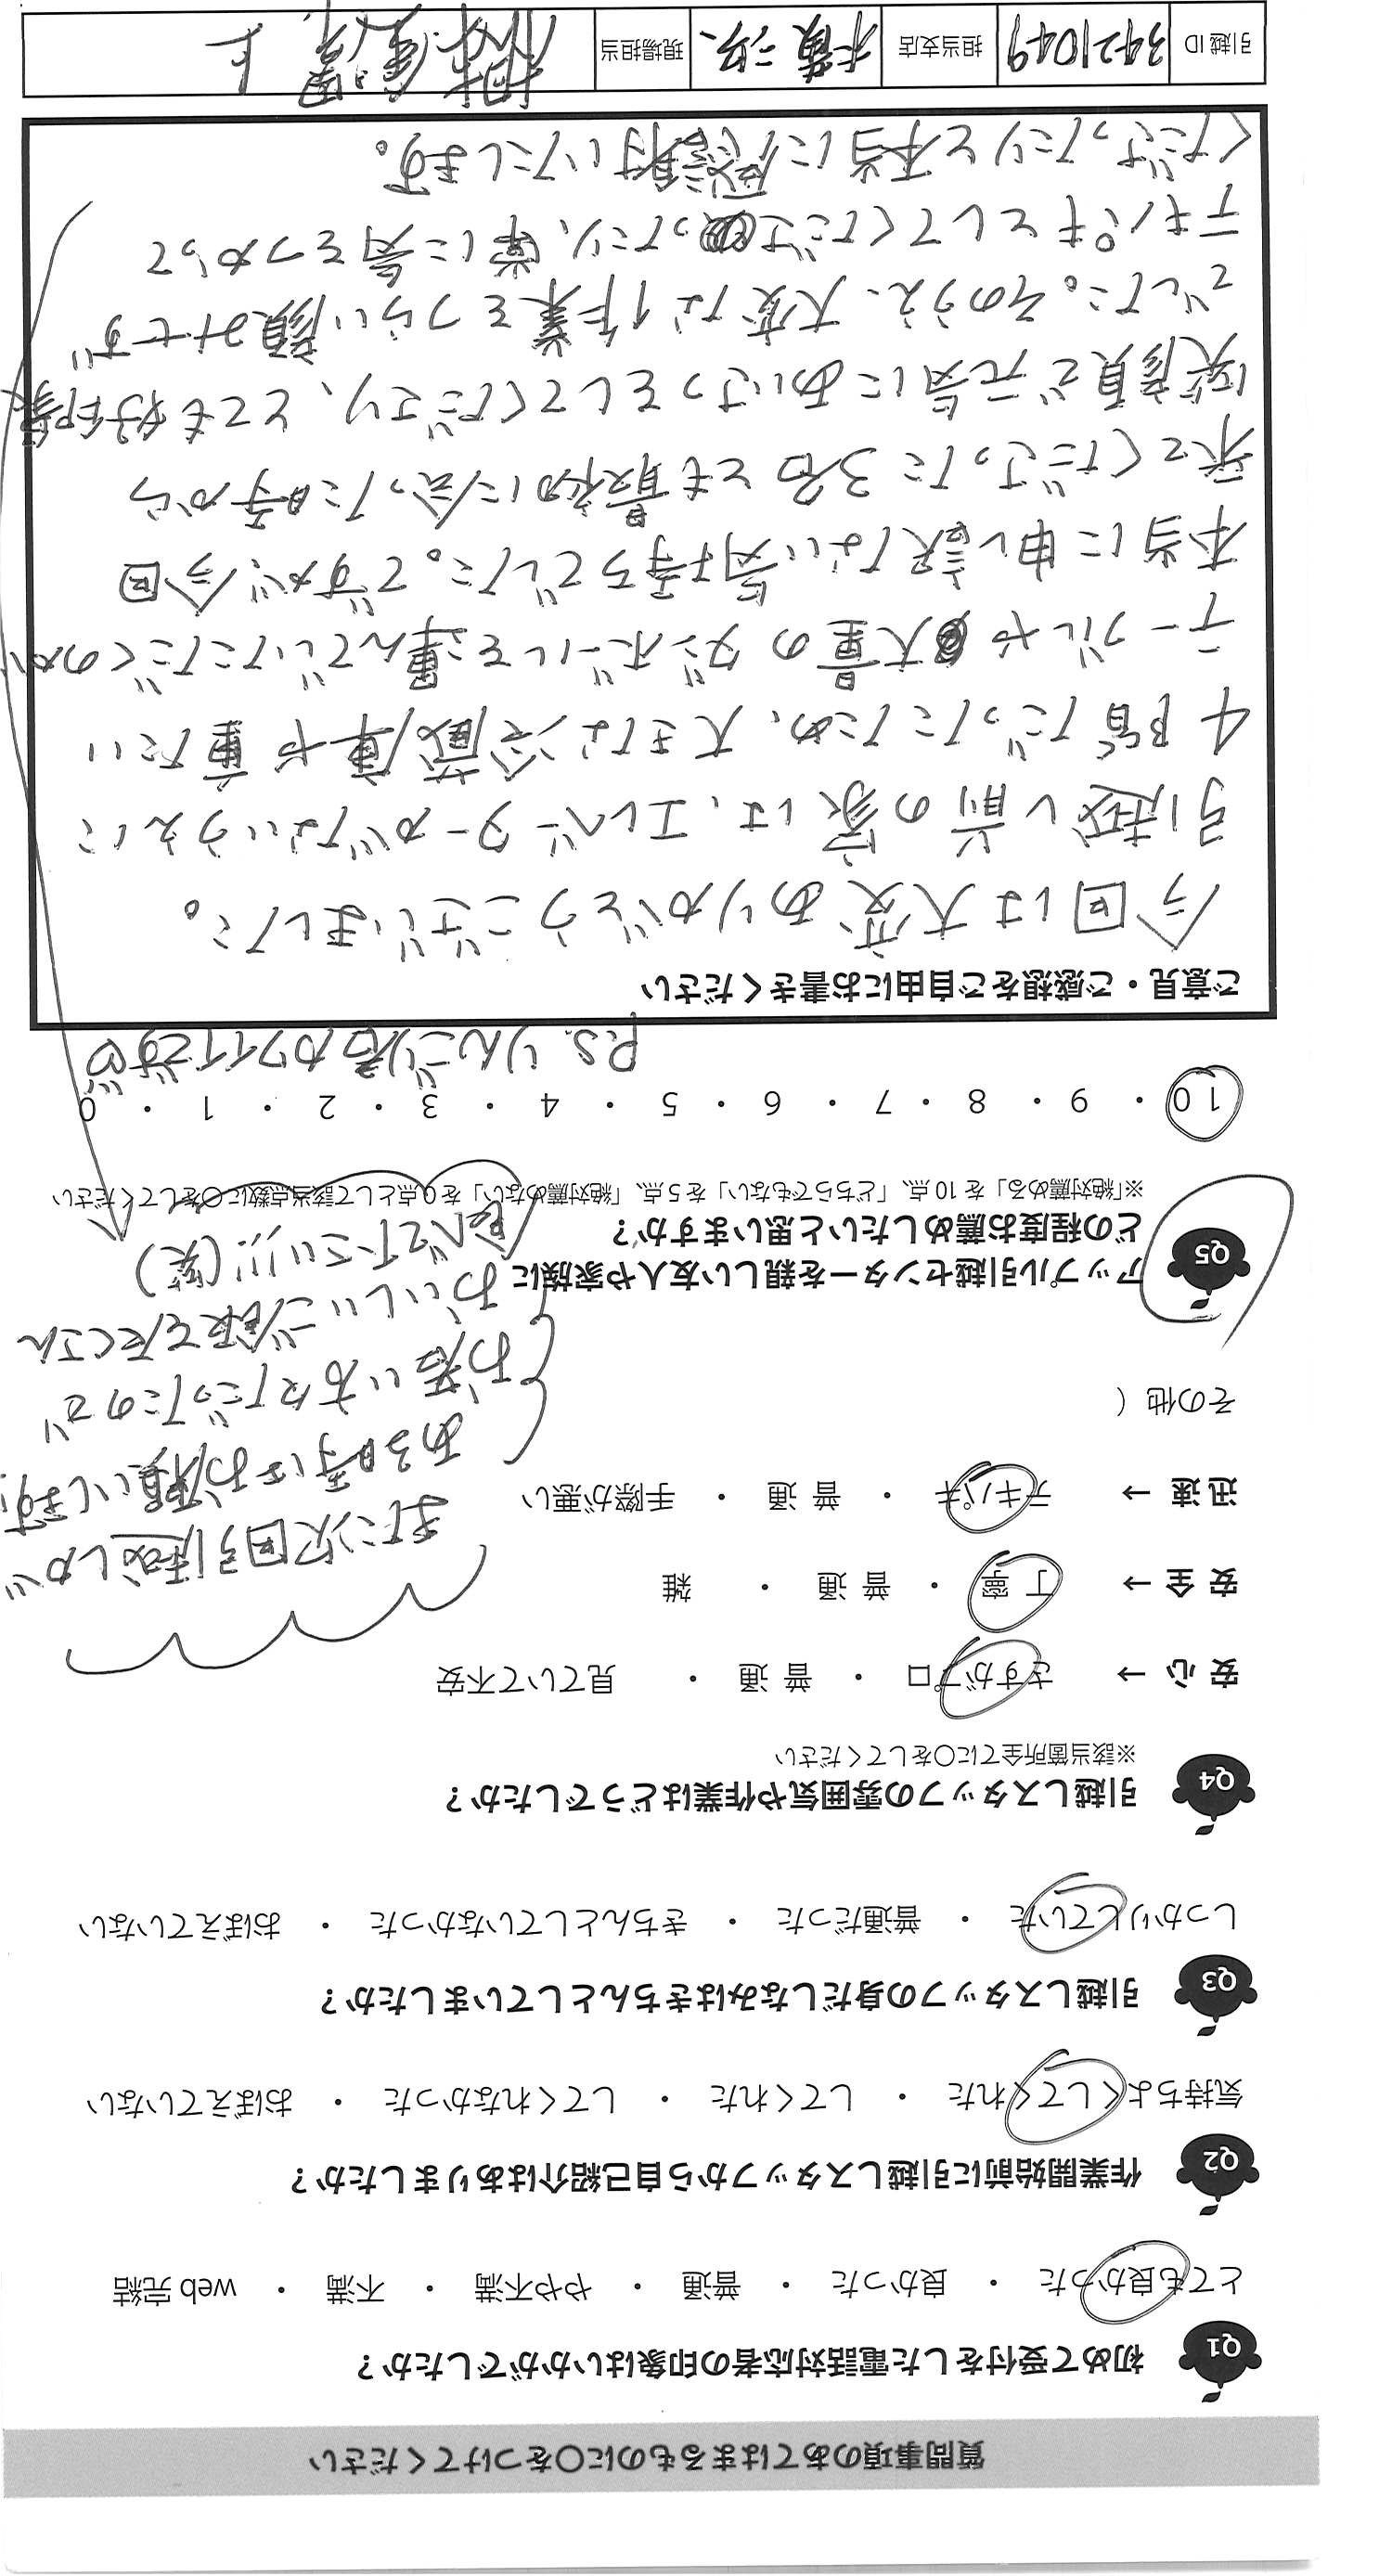 質問事項のあてはまるものに○をつけてください
Q1 初めて受付をした電話対応者の印象はいかがでしたか？
とても良かった ・ 良かった ・ 普通 ・ やや不満 ・ 不満 ・ web 完結
Q2 作業開始前に引越しスタッフから自己紹介はありましたか？
気持ちよくしてくれた ・ してくれた ・ してくれなかった ・ おぼえていない
Q3 引越しスタッフの身だしなみはきちんとしていましたか？
しっかりしていた ・ 普通だった ・ きちんとしていなかった ・ おぼえていない
Q4 引越しスタッフの雰囲気や作業はどうでしたか？
※該当箇所全てに○をしてください
安 心 → さすがプロ ・ 普 通 ・ 見ていて不安
安 全 → 丁 寧 ・ 普 通 ・ 雑
迅 速 → テキパキ ・ 普 通 ・ 手際が悪い
その他（
また次回引越しが
ある時はお願いします!
お若い方々だったので
おいしいご飯をたくさん
食べて下さい!!!(笑)
Q5 アップル引越センターを親しい友人や家族に
どの程度お薦めしたいと思いますか？
※「絶対薦める」を 10 点、「どちらでもない」を 5 点、「絶対薦めない」を 0 点として該当点数に○をしてください
10 ・ 9 ・ 8 ・ 7 ・ 6 ・ 5 ・ 4 ・ 3 ・ 2 ・ 1 ・ 0
P.S. りんごり君カワイイです♡
ご意見・ご感想をご自由にお書きください
今回は大変ありがとうございました。
引越し前の家は、エレベーターがないうえに
4階だったため、大きな冷蔵庫や重たい
テーブルや大量のダンボールを運んでいただくのが、
本当に申し訳ない気持ちでした。ですが、今回
来てくださった3名とも最初に会った時から
笑顔で元気にあいさつをしてくださり、とても好印象
でした。そのうえ、大変な作業をつらい顔みせず
テキパキとしてくださったり、常に気をつかって
くださったりと本当に感謝いたします。
引越 ID 3421049 担当支店 現場担当